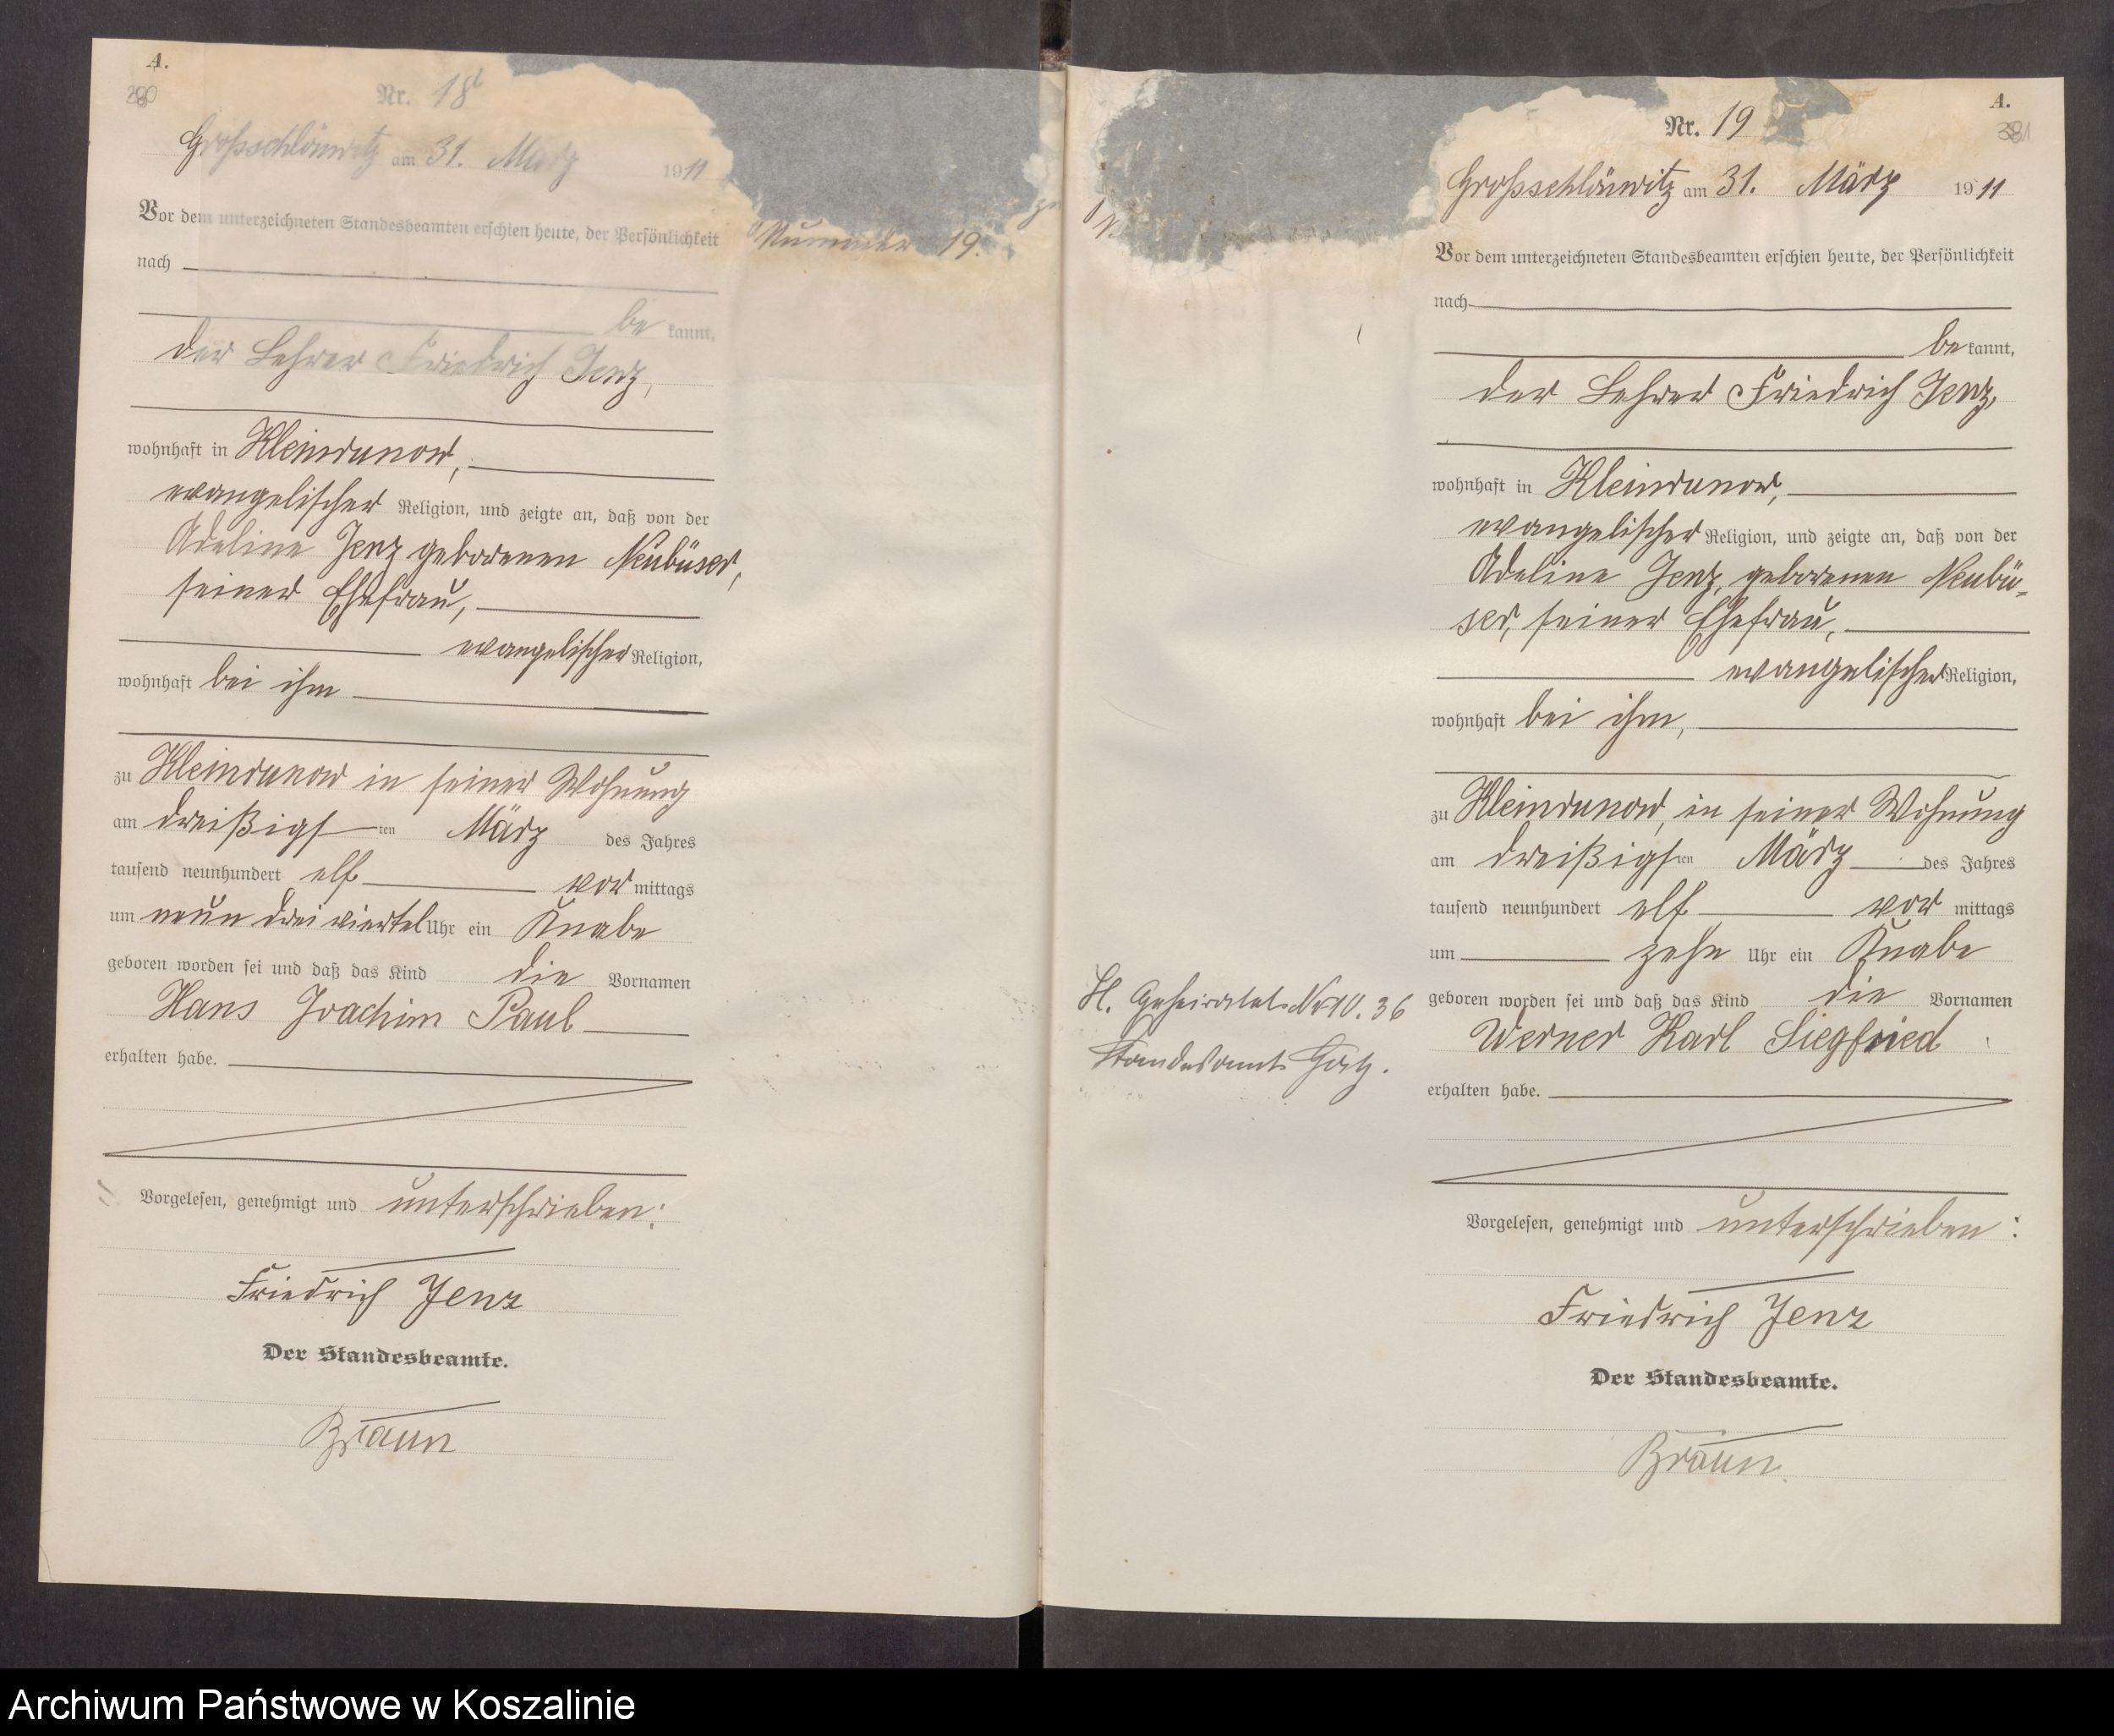 A.
280
Nr. 18
Grossschlönwitz am 31. März 1911
Vor dem unterzeichneten Standesbeamten erschien heute, der Persönlichkeit
nach
be kannt,
der Lehrer Friedrich Jenz,
wohnhaft in Kleinrunow,
evangelischer Religion, und zeigte an, daß von der
Adeline Jenz geborenen Neubüser,
seiner Ehefrau,
evangelischer Religion,
wohnhaft bei ihm
zu Kleinrunow in seiner Wohnung
am dreißigsten März des Jahres
tausend neunhundert elf vor mittags
um neun dreiviertel Uhr ein Knabe
geboren worden sei und daß das Kind die Vornamen
Hans Joachim Paul
erhalten habe.
Vorgelesen, genehmigt und unterschrieben:
Friedrich Jenz
Der Standesbeamte.
Braun
Nummer 19.
A.
Nr. 19
Grossschlönwitz am 31. März 1911
Vor dem unterzeichneten Standesbeamten erschien heute, der Persönlichkeit
nach
be kannt,
der Lehrer Friedrich Jenz,
wohnhaft in Kleinrunow,
evangelischer Religion, und zeigte an, daß von der
Adeline Jenz, geborenen Neubü-
ser, seiner Ehefrau,
evangelischer Religion,
wohnhaft bei ihm,
zu Kleinrunow, in seiner Wohnung
am dreißigsten März des Jahres
tausend neunhundert elf vor mittags
um zehn Uhr ein Knabe
geboren worden sei und daß das Kind die Vornamen
Werner Karl Siegfried
erhalten habe.
Vorgelesen, genehmigt und unterschrieben:
Friedrich Jenz
Der Standesbeamte.
Braun.
Geheiratet Nr 10. 36
Standesamt
Archiwum Państwowe w Koszalinie